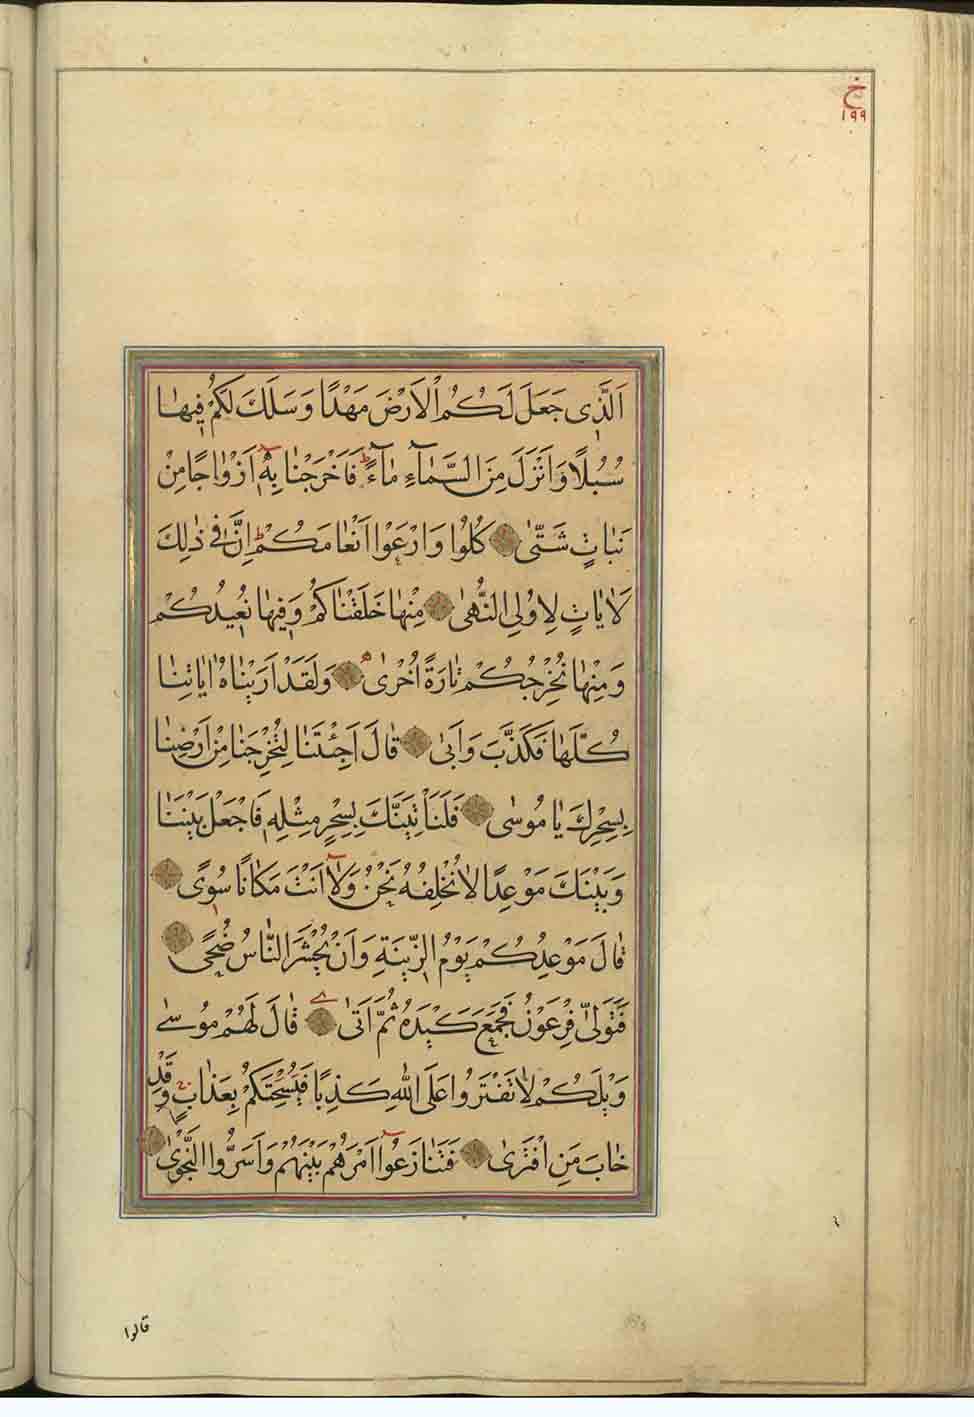 خ
١٩٩
اَلَّذٖى جَعَلَ لَكُمُ الْاَرْضَ مَهْدًا وَسَلَكَ لَكُمْ فٖيهٰا
سُبُلًا وَاَنْزَلَ مِنَ السَّمٰآءِ مٰآءً فَاَخْرَجْنٰا بِهٖٓ اَزْوٰاجًا مِنْ
نَبٰاتٍ شَتّٰى كُلُوا وَارْعَوْا اَنْعٰامَكُمْ اِنَّ فٖى ذٰلِكَ
لَاٰيٰاتٍ لِاُولِى النُّهىٰ مِنْهٰا خَلَقْنٰاكُمْ وَفٖيهٰا نُعٖيدُكُمْ
وَمِنْهٰا نُخْرِجُكُمْ تٰارَةً اُخْرٰى وَلَقَدْ اَرَيْنٰاهُ اٰيٰاتِنٰا
كُلَّهٰا فَكَذَّبَ وَاَبىٰ قٰالَ اَجِئْتَنٰا لِتُخْرِجَنٰا مِنْ اَرْضِنٰا
بِسِحْرِكَ يٰا مُوسٰى فَلَنَأْتِيَنَّكَ بِسِحْرٍ مِثْلِهٖ فَاجْعَلْ بَيْنَنٰا
وَبَيْنَكَ مَوْعِدًا لٰا نُخْلِفُهُ نَحْنُ وَلٰٓا اَنْتَ مَكٰانًا سُوًى
قٰالَ مَوْعِدُكُمْ يَوْمُ الزّٖينَةِ وَاَنْ يُحْشَرَ النّٰاسُ ضُحًى
فَتَوَلّٰى فِرْعَوْنُ فَجَمَعَ كَيْدَهُ ثُمَّ اَتٰى قٰالَ لَهُمْ مُوسٰى
وَيْلَكُمْ لٰا تَفْتَرُوا عَلَى اللّٰهِ كَذِبًا فَيُسْحِتَكُمْ بِعَذٰابٍ وَقَدْ
خٰابَ مَنِ افْتَرٰى فَتَنٰازَعُوٓا اَمْرَهُمْ بَيْنَهُمْ وَاَسَرُّوا النَّجْوٰى
قالوا